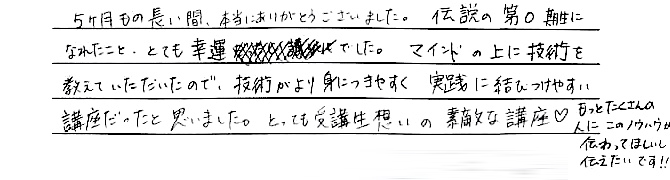 5ヶ月もの長い間、本当にありがとうございました。 伝説の第0期生に
なれたこと、とても幸運でした。 マインドの上に技術を
教えていただいたので、技術がより身につきやすく 実践に結びつけやすい
講座だったと思いました。とっても受講生想いの素敵な講座♡
もっとたくさんの
人にこのノウハウが
伝わってほしいし
伝えたいです!!